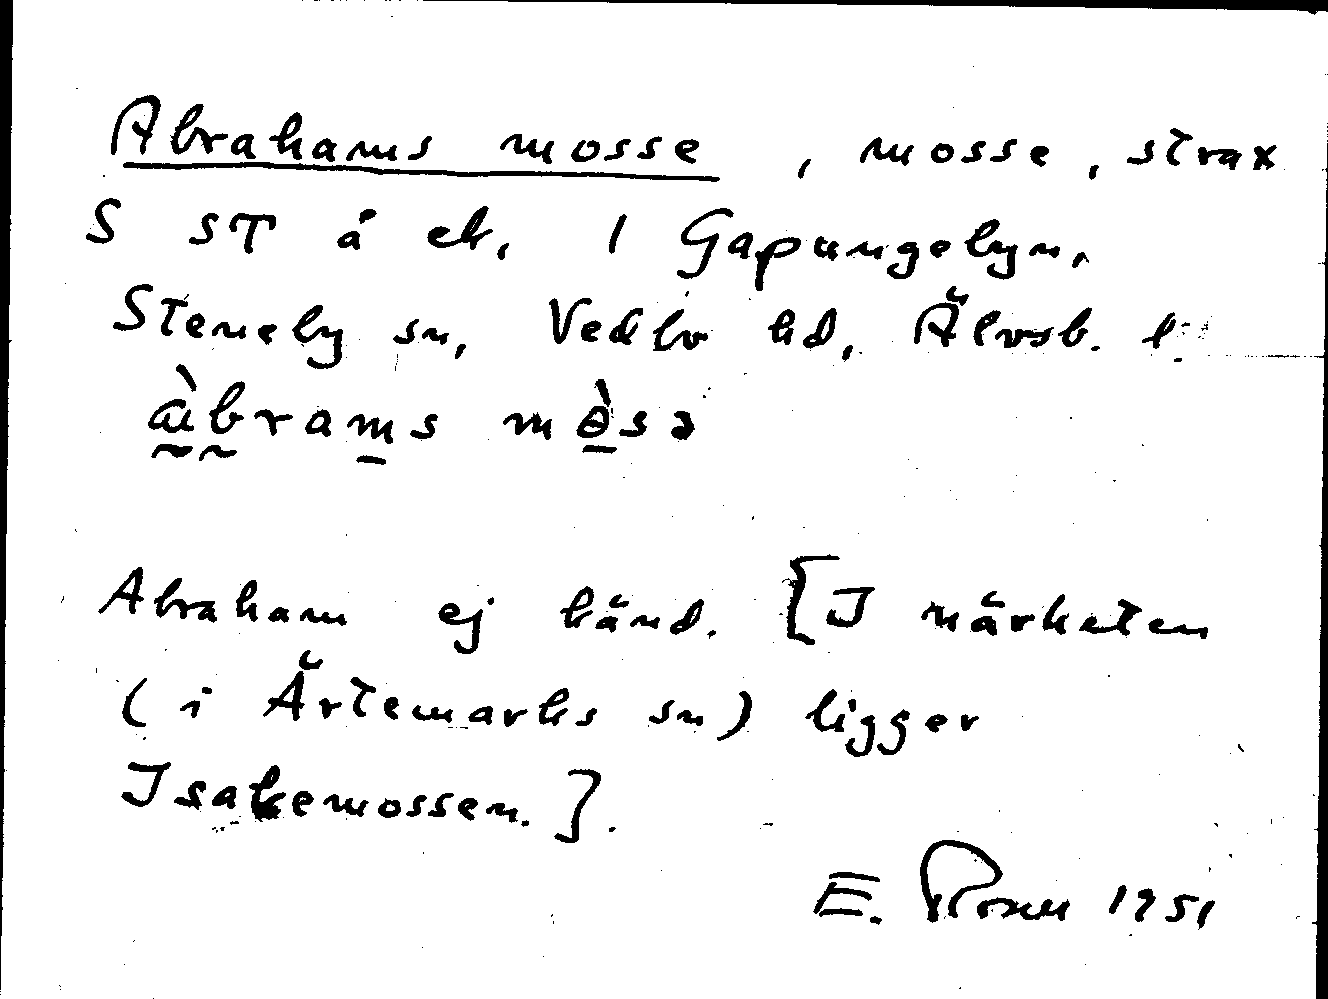 Abrahams mosse, mosse, strax
S ST å ek. 1 Gapungebyn,
Steneby sn, Vedbo hd, Älvsb. l.
àbrams mòsə
Abraham ej känd. [I närheten
(i Ärtemarks sn) ligger
Isakemossen.].
E. Rosell 1951